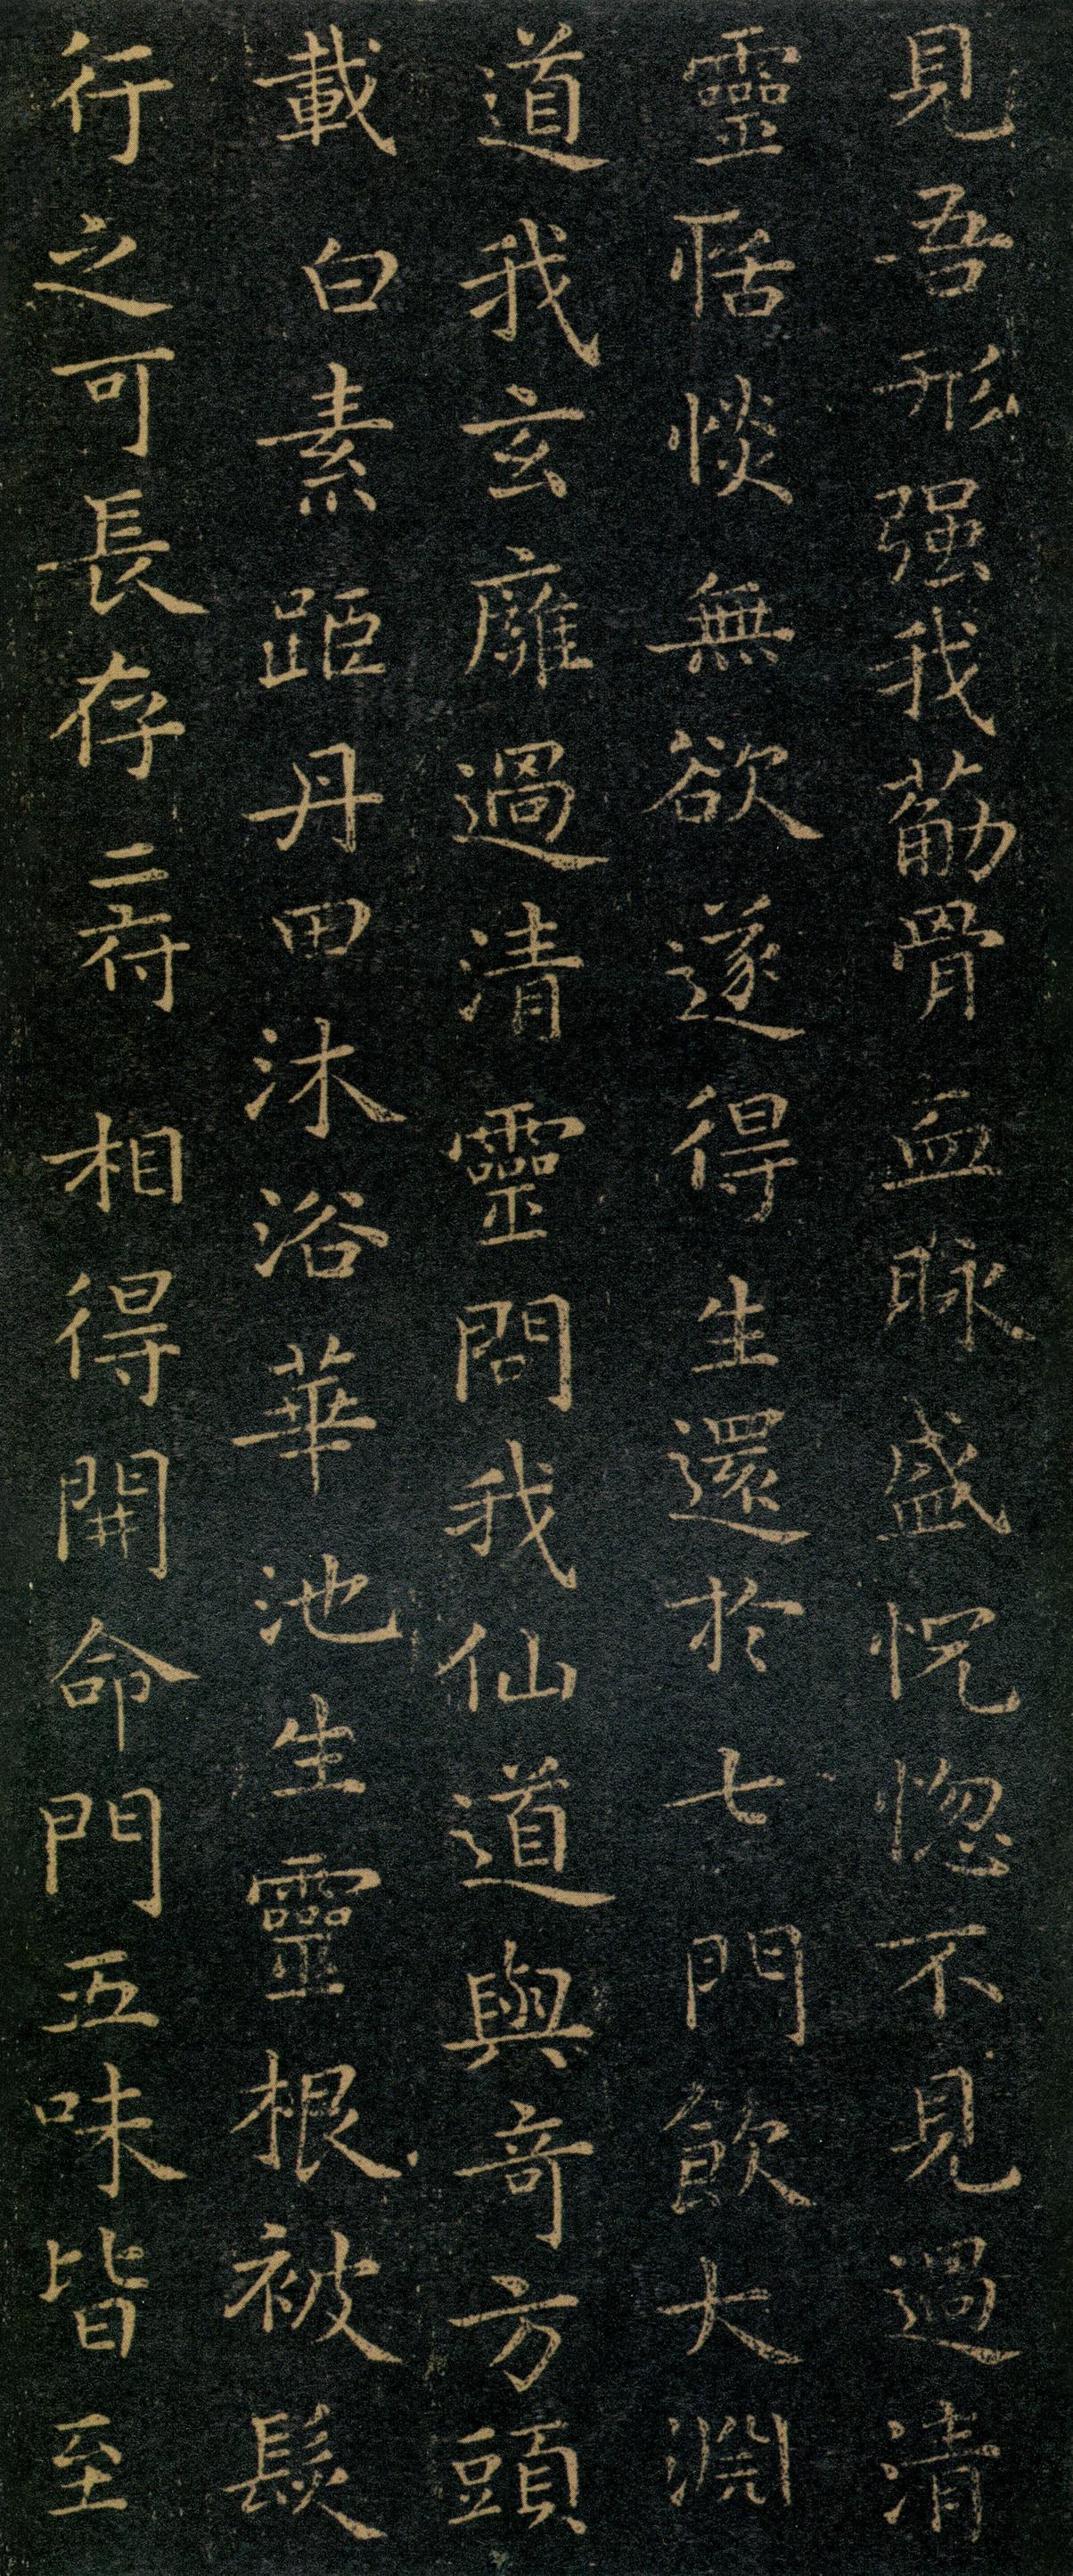 見吾形强我葡骨血脉盛怳惚不見過清
靈恬惔無欲遂得生還於七門飲大淵
道我玄廱過清靈問我仙道與奇方頭
載白素距丹田沐浴華池生靈根被髮
行之可長存二府相得開命門五味皆至